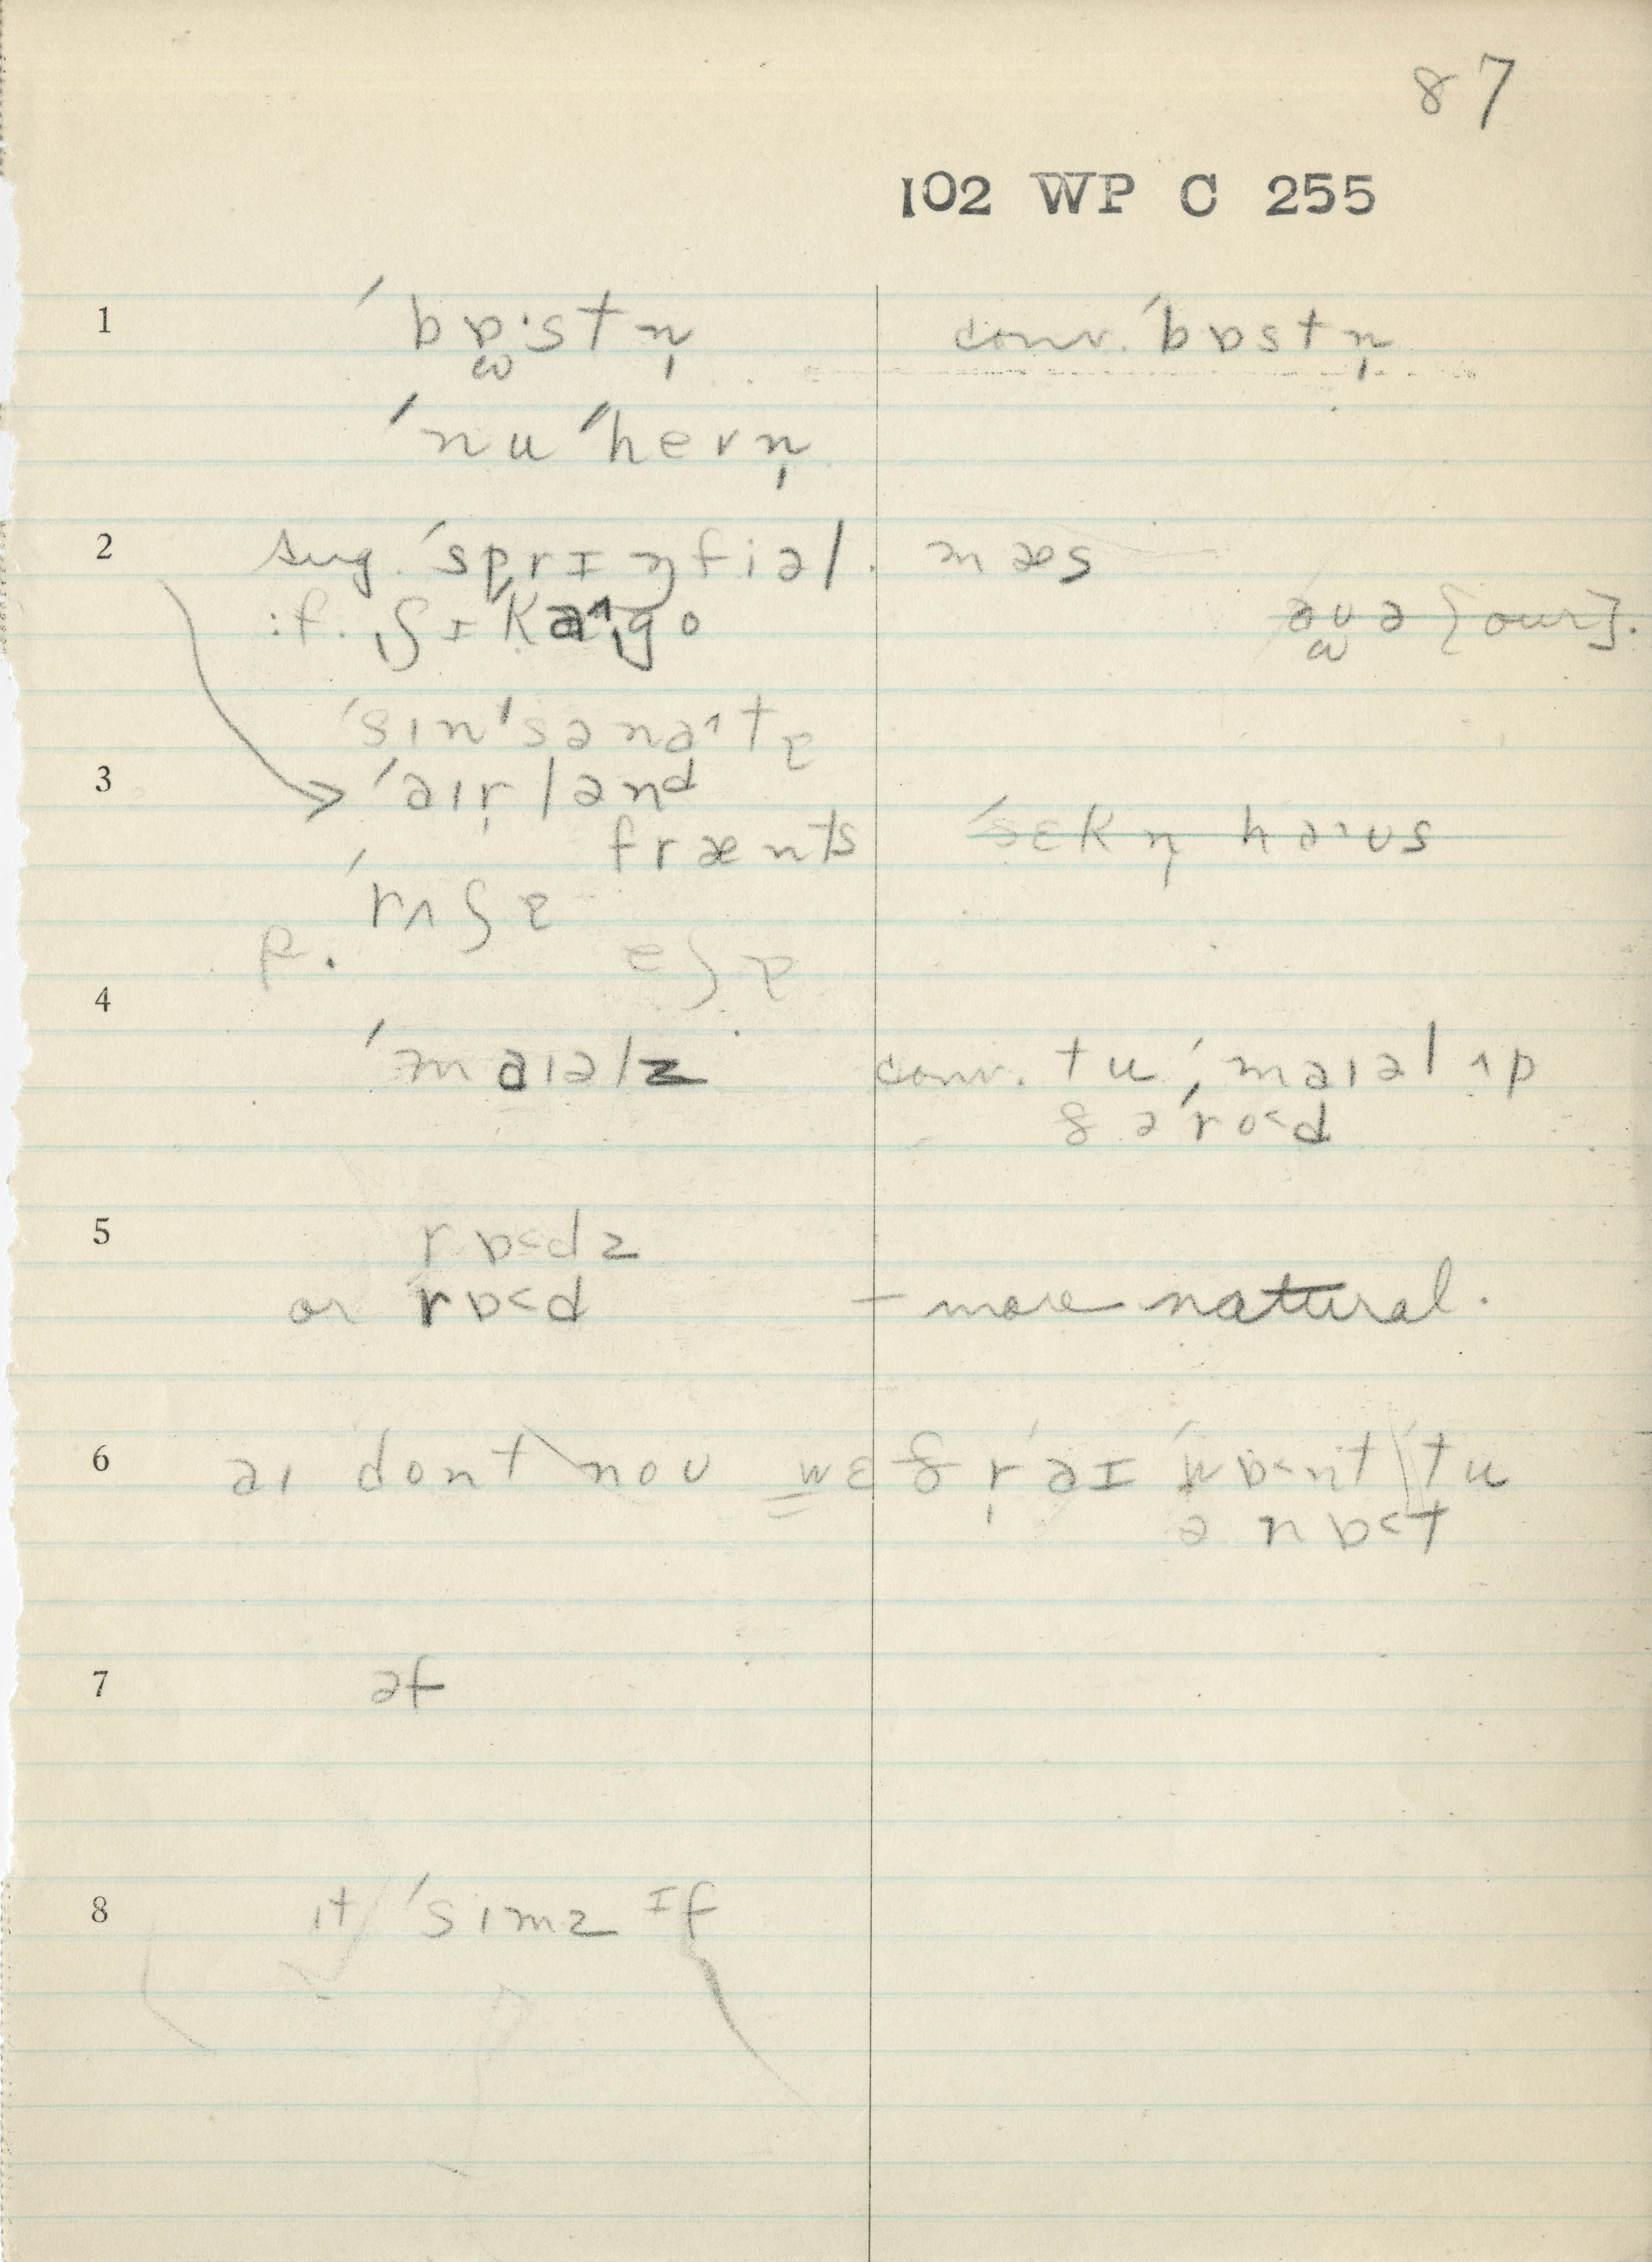 87
102 WP C 255
1 ˈbɒ̫·stn̩ conv. ˈbɒstn̩
ˈnuˈˈhevn̩
2 sug. ˈsprɪŋfiəl. mæs
:f. ʃɪˈka˄ˌgo aʊə [our].
ˈsɪnˈsəna˄tɪ
3 ˈaɪr̩lənd
frænts ˈsɛkn̩ ha·ʊs
ˈrʌʃɪ
p. eʃɪ
4 ˈmaɪəlz conv. tu ˌˈmaɪəl ʌp
ðəˈro<d
5 rɒ<dz
or rɒ<d – more natural.
6 aɪ dont noʊ wɛðr̩ˈaɪ ˈwɒ<nt tu
ə nɒ<t
7 əf
8 ɪt ˈsimz ɪf